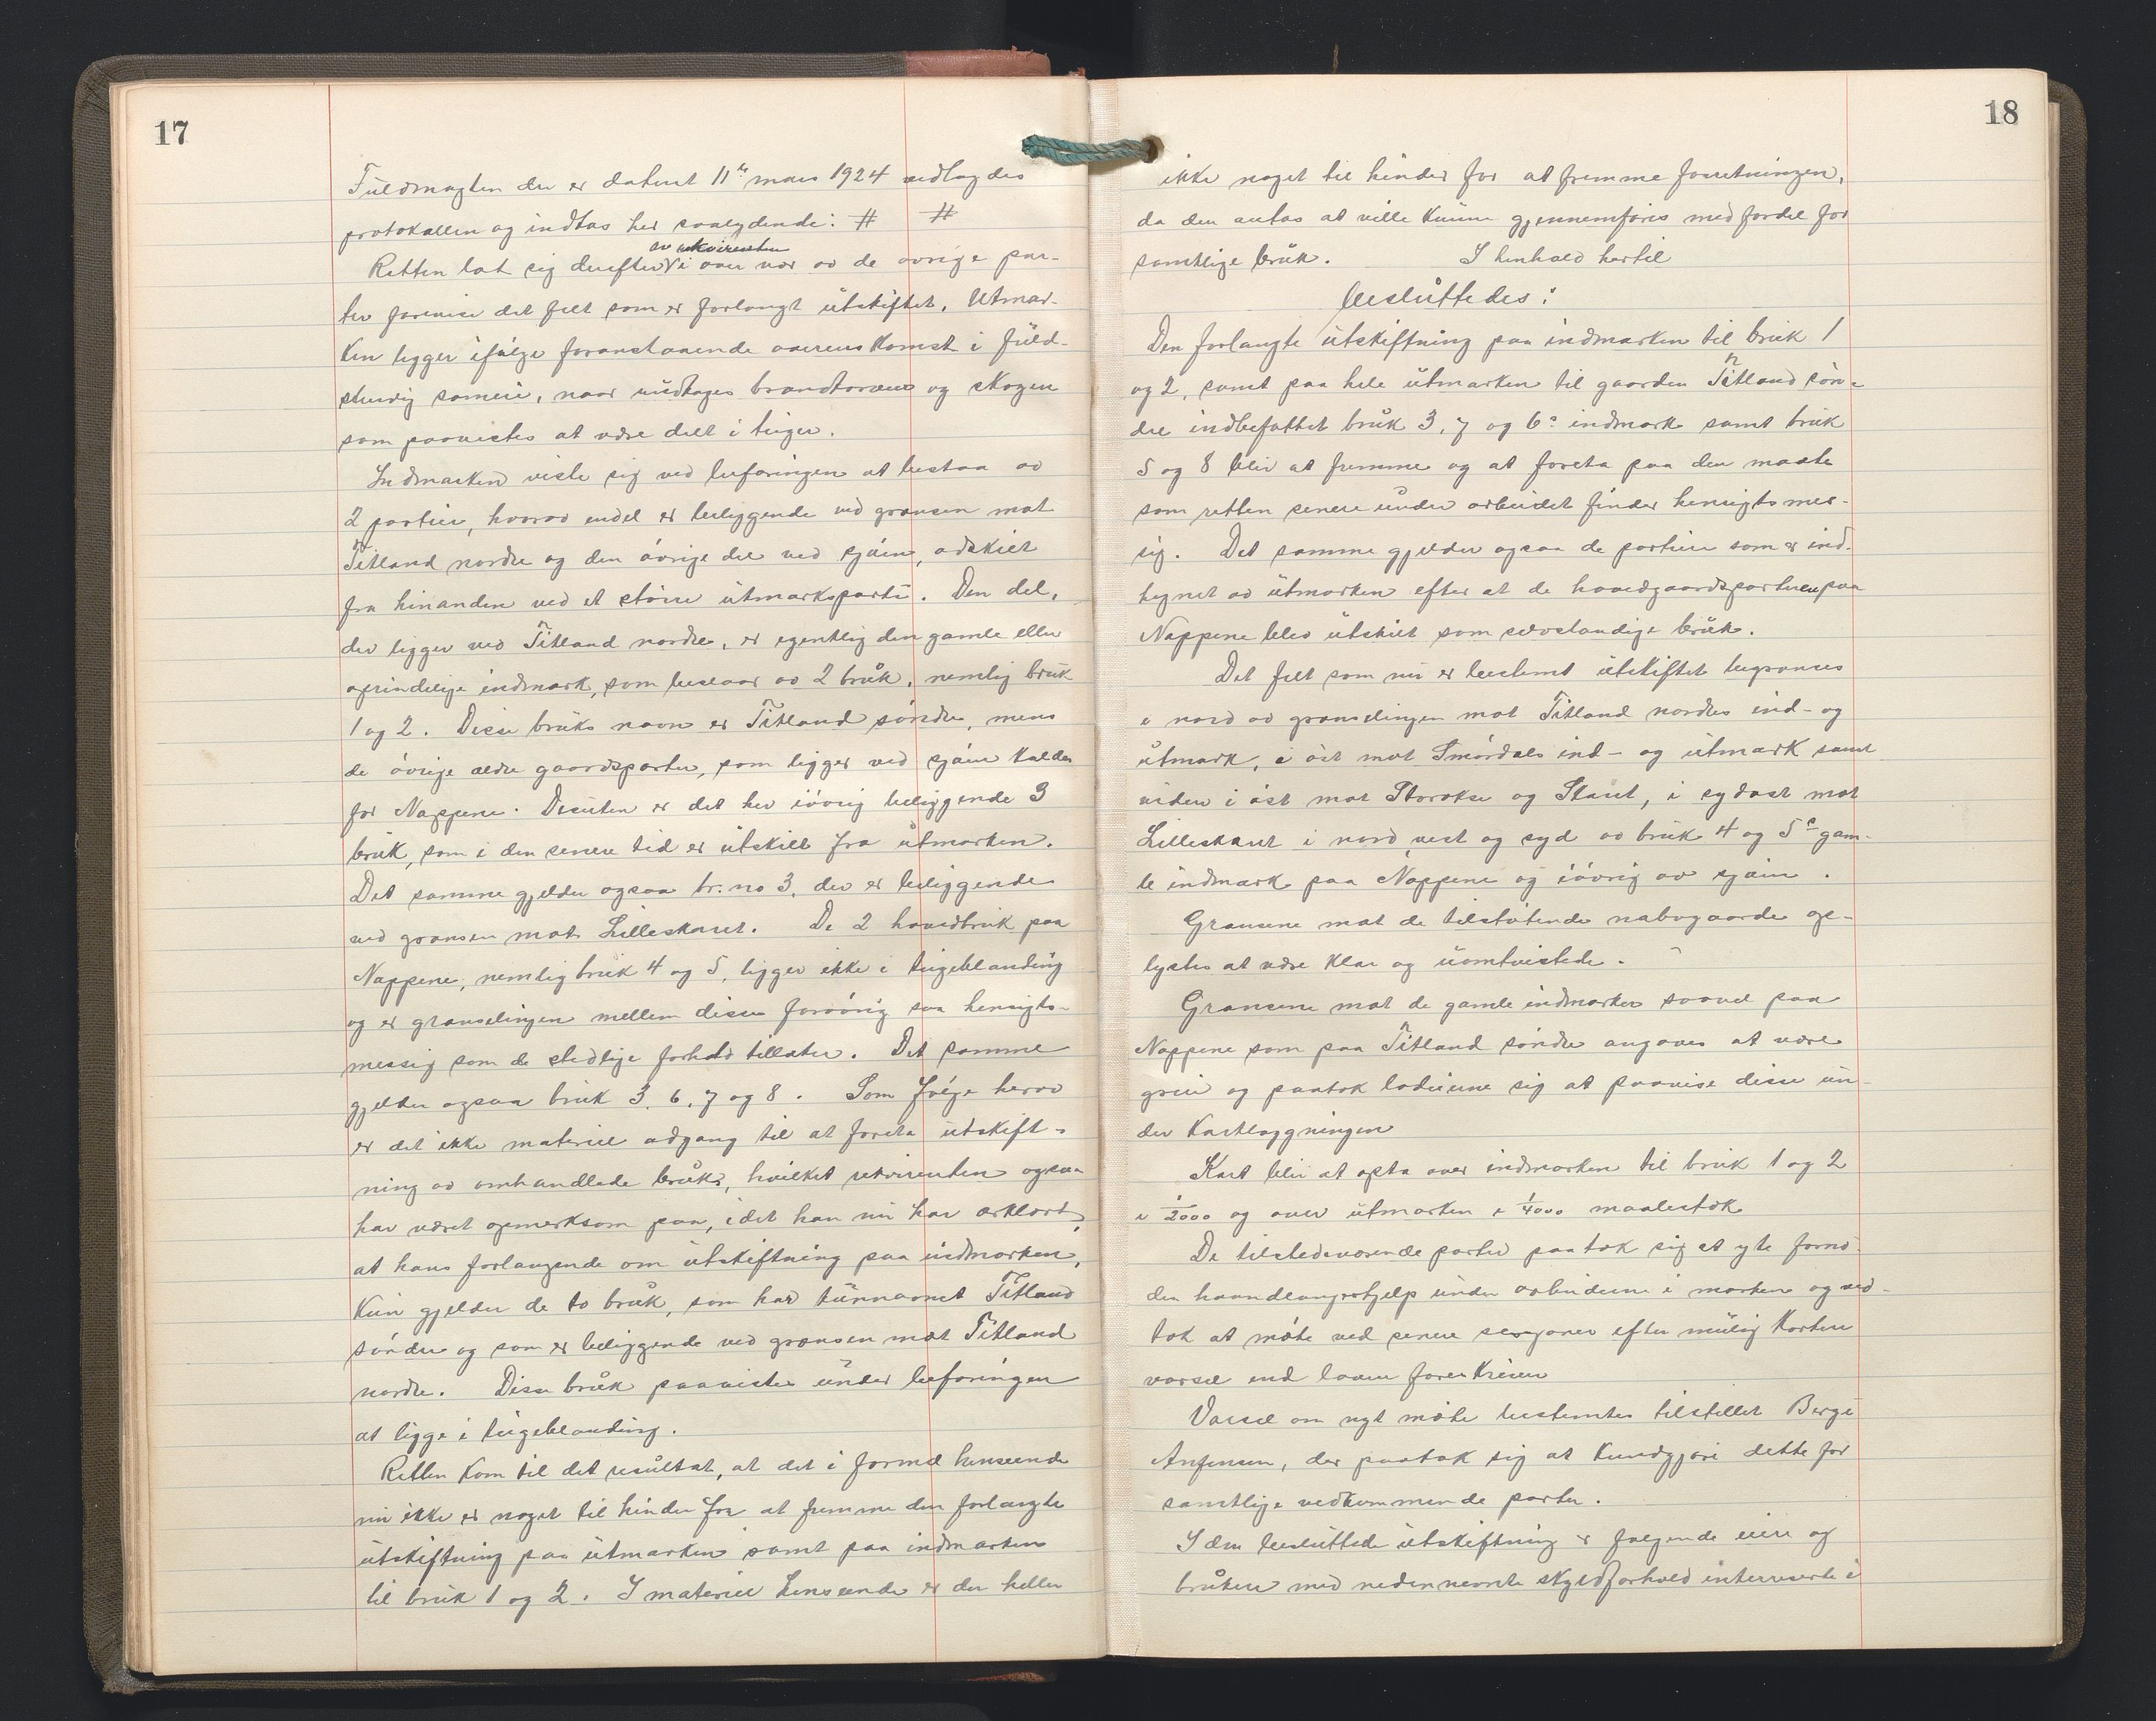 17
Fuldmagten der er datert 11te mars 1924 vedlagdes
protokollen og indtas her saalydende: # #
av rekvirenten
Retten lot sig derefter V i over vær av de øvrige par-
ter forevise det felt som er forlangt utskiftet. Utmar-
ken ligger ifølge foranstaaende overenskomst i fuld-
stendig sameie, naar undtages brandtorven og skogen
som paavistes at være delt i teiger.
Indmarken viste sig ved befaringen at bestaa av
2 partier, hvorav endel er beliggende ved grænsen mot
Titland nordre og den øvrige del ved sjøen, adskilt
fra hinanden ved et større utmarksparti. Den del,
der ligger ved Titland nordre, er egentlig den gamle eller
oprindelige indmark, som bestaar av 2 bruk, nemlig bruk
1 og 2. Disse bruks navn er Titland søndre, mens
de øvrige ældre gaardsparter, som ligger ved sjøen kaldes
for Nappene. Desuten er det her iøvrig beliggende 3
bruk, som i den senere tid er utskilt fra utmarken.
Det samme gjelder ogsaa br. no 3, der er beliggende
ved grænsen mot Lilleskaret. De 2 hovedbruk paa
Nappene, nemlig bruk 4 og 5, ligger ikke i teigeblanding
og er grænselinjen mellem disse forøvrig saa hensigts-
messig som de stedlige forhold tillater. Det samme
gjelder ogsaa bruk 3, 6, 7 og 8. Som følge herav
er det ikke materiel adgang til at foreta utskift-
ning av omhandlede bruk, hvilket rekvirenten ogsaa
har været opmerksom paa, idet han nu har erklært,
at hans forlangende om utskiftning paa indmarken,
kun gjelder de to bruk, som har tunnavnet Titland
søndre og som er beliggende ved grænsen mot Titland
nordre. Disse bruk paavistes under befaringen
at ligge i teigeblanding.
Retten kom til det resultat, at det i formel henseende
nu ikke er noget til hinder for at fremme den forlangte
utskiftning paa utmarken samt paa indmarken
til bruk 1 og 2. I materiel henseende er der heller
18
ikke noget til hinder for at fremme forretningen,
da den antas at ville kunne gjennemføres med fordel for
samtlige bruk. I henhold hertil
besluttedes:
Den forlangte utskiftning paa indmarken til bruk 1
og 2, samt paa hele utmarken til gaarden Titland søn-
dre indbefattet bruk 3, 7 og 6s indmark samt bruk
5 og 8 blir at fremme og at foreta paa den maate
som retten senere under arbeidet finder hensigtsmes-
sig. Det samme gjelder ogsaa de partier som er ind-
hegnet av utmarken efter at de hovedgaardsparterne paa
Nappene blev utskilt som selvstændige bruk.
Det felt som nu er bestemt utskiftet begrænses
i nord av grænselinjen mot Titland nordres ind- og
utmark, i øst mot Smørdals ind- og utmark samt
videre i øst mot Storakse og Skaret, i sydøst mot
Lilleskaret i nord, vest og syd av bruk 4 og 5s gam-
le indmark paa Nappene og iøvrig av sjøen.
Grænsene mot de tilstøtende nabogaarde op-
lystes at være klar og uomtvistede.
Grænsene mot de gamle indmarker saavel paa
Nappene som paa Titland søndre angaves at være
grei og paatok lodeierne sig at paavise disse un-
der kartlægningen
Kart blir at opta over indmarken til bruk 1 og 2
i 1/2000 og over utmarken i 1/4000 maalestok
De tilstedeværende parter paatok sig at yte fornø-
den haandlangerhjelp under arbeiderne i marken og ved-
tok at møte ved senere sesjoner efter mulig kortere
varsel end loven foreskriver
Varsel om nyt møte bestemtes tilstillet Berge
Anfensen, der paatok sig at kundgjøre dette for
samtlige vedkommende parter.
I den besluttede utskiftning er følgende eiere og
brukere med nedennevnte skyldforhold interesserte i